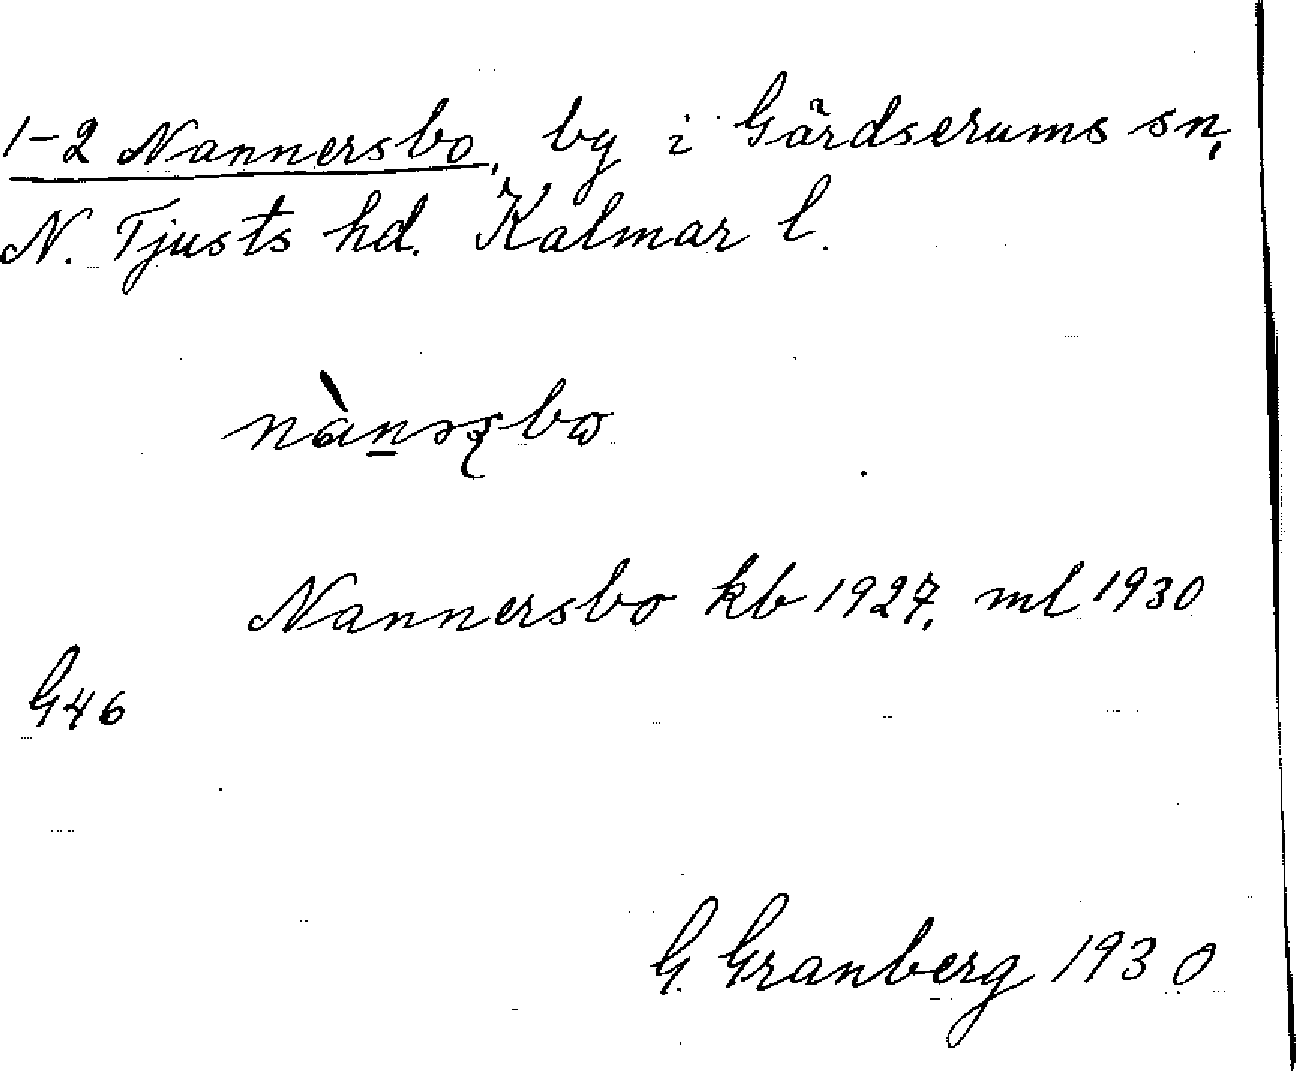 1-2 Nannersbo, by i Gärdserums sn,
N. Tjusts hd. Kalmar l.
Nannersbo kb 1927, ml 1930
G46
G. Granberg 1930